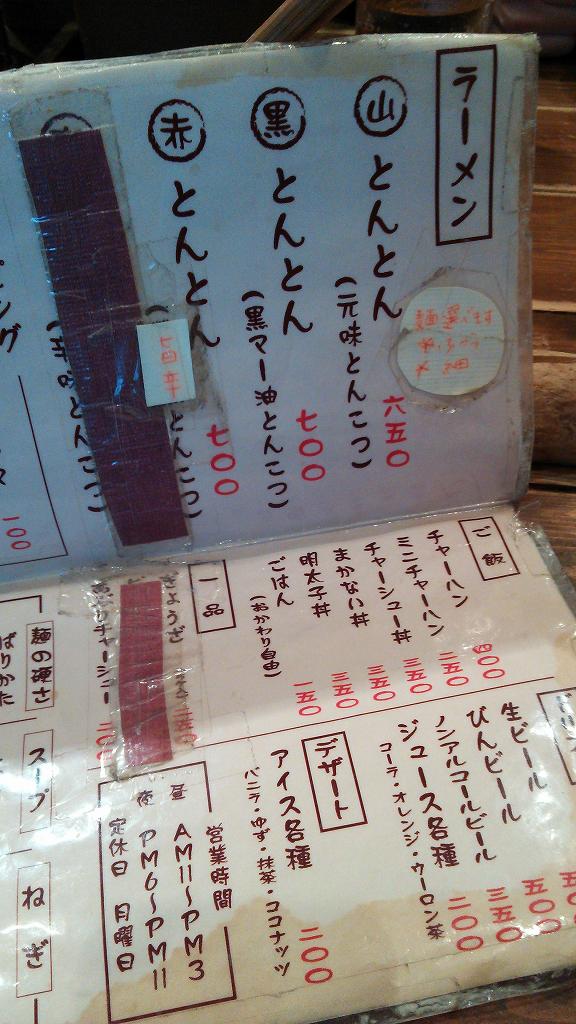 ラーメン
山 とんとん
(元味とんこつ)
六五〇
麺選べます
黒 とんとん
(黒マー油とんこつ)
七〇〇
赤 とんとん
とんこつ)
七〇〇
(辛味とんこつ)
一〇〇
ご飯
チャーハン 四〇〇
ミニチャーハン 二五〇
チャーシュー丼 三五〇
まかない丼 三五〇
明太子丼 三五〇
ごはん
(おかわり自由)
一五〇
一品
ぎょうざ
チャーシュー
麺の硬さ
ばりかた
スープ
ねぎ
生ビール
びんビール
ノンアルコールビール 三五〇
ジュース各種 二〇〇
コーラ・オレンジ・ウーロン茶
デザート
アイス各種
バニラ・ゆず・抹茶・ココナッツ
二〇〇
営業時間
昼 AM11〜PM3
夜 PM6〜PM11
定休日 月曜日